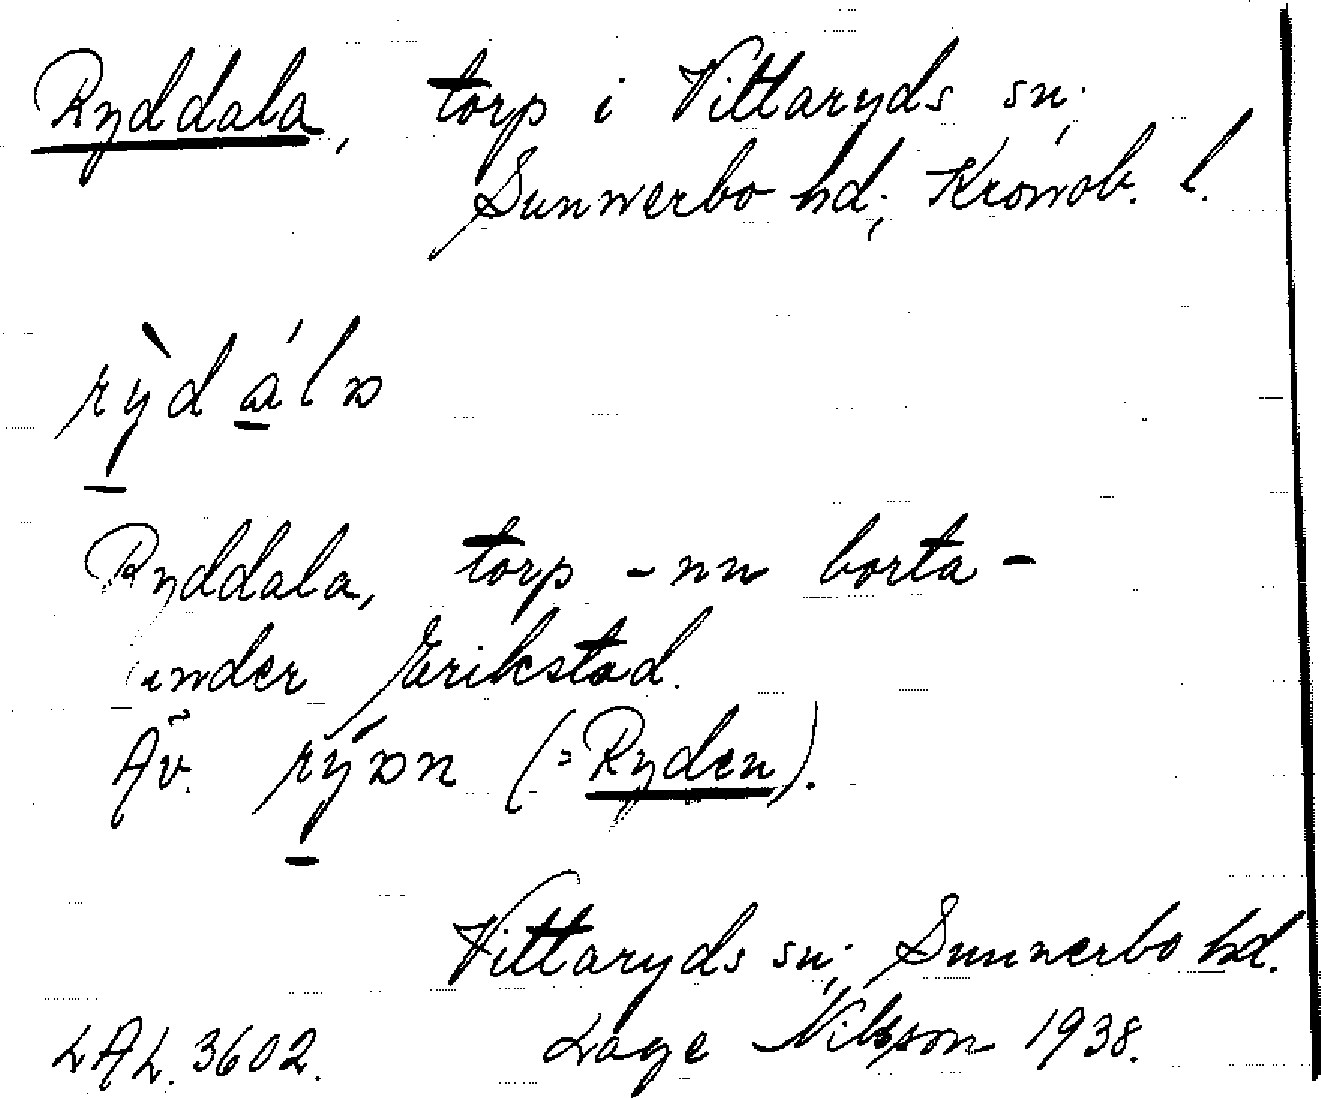 Ryddala, torp i Vittaryds sn.,
Sunnerbo hd., Kronob. l.
rỳdálɒ
Ryddala, torp - nu borta -
under Erikstad.
Äv. rýɒn (= Ryden).
Vittaryds sn., Sunnerbo hd.
LAL. 3602. Lage Nilsson 1938.